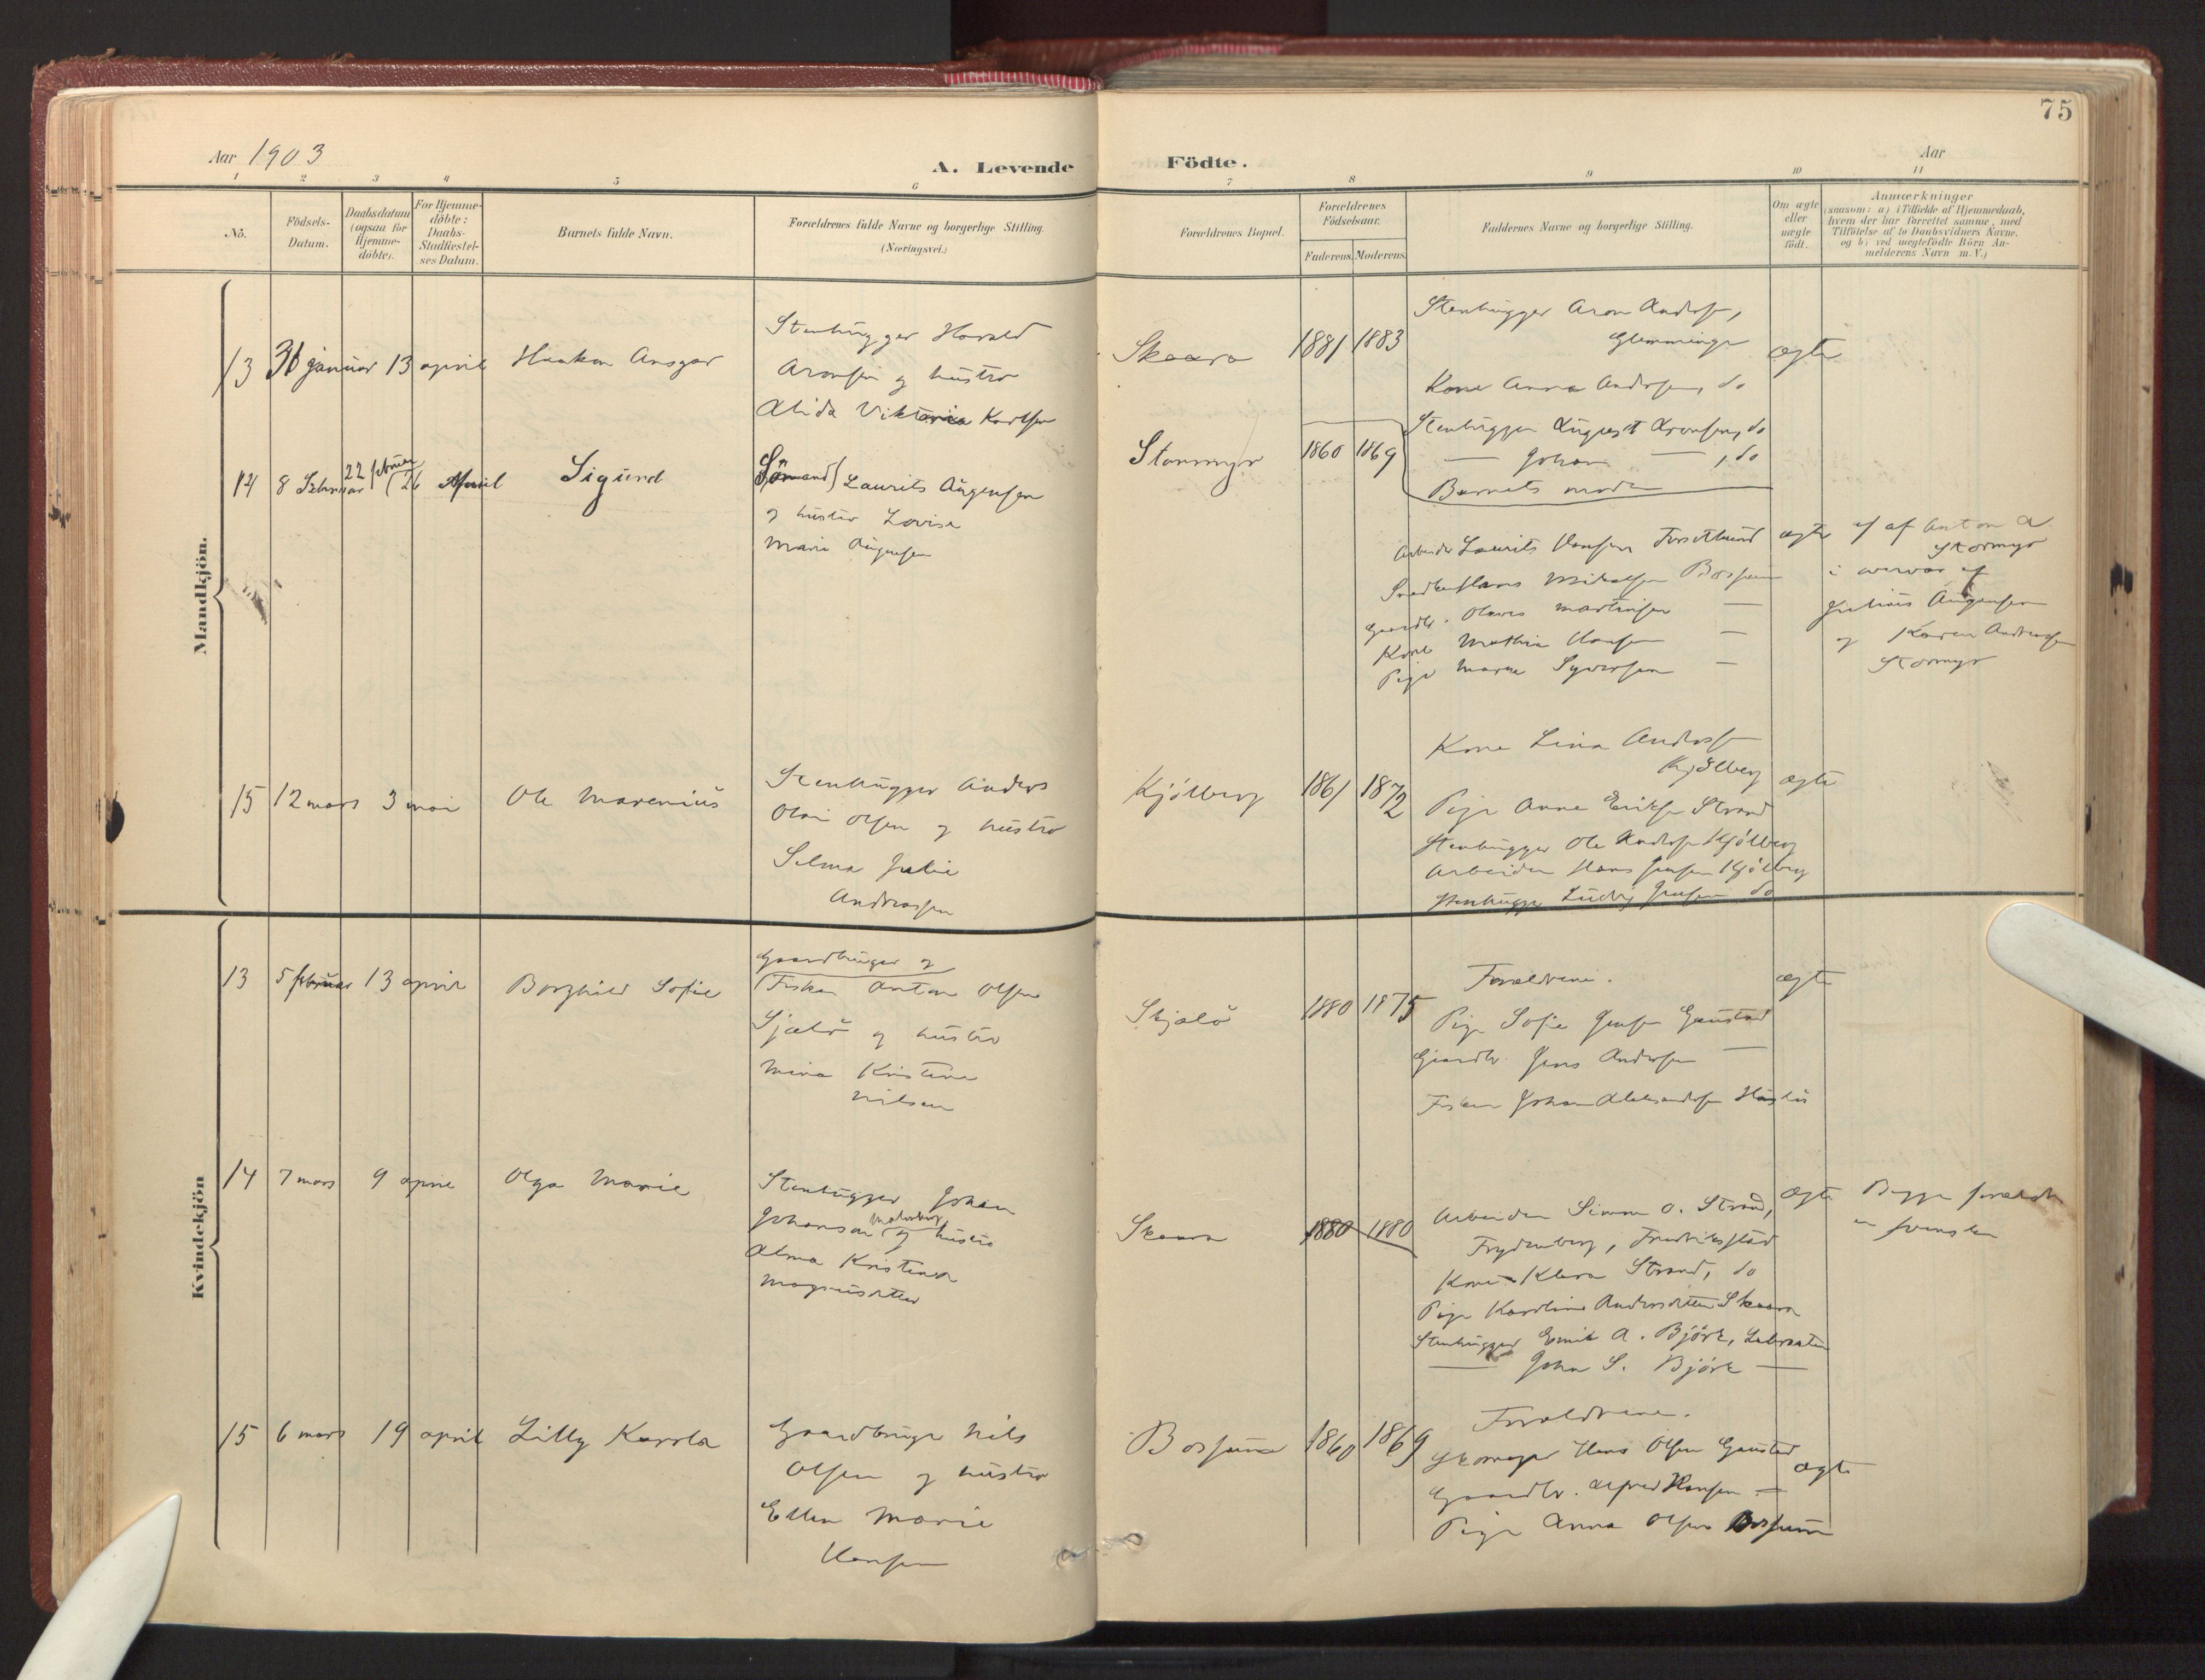 75
Aar 1903
A. Levende Födte.
Aar
1 2 3 4 5 6 7 8 9 10 11
No.
Födsels-
Datum.
Daabsdatum
(ogsaa for
Hjemme-
döbte).
For Hjemme-
döbte:
Daabs-
Stadfæstel-
ses Datum.
Barnets fulde Navn.
Forældrenes fulde Navne og borgerlige Stilling.
(Næringsvei.)
Forældrenes Bopæl.
Forældrenes
Födselsaar.
Faderens. Moderens.
Faddernes Navne og borgerlige Stilling.
Om ægte
eller
uægte
födt.
Anmærkninger
(saasom: a) i Tilfælde af Hjemmedaab,
hvem der har forrettet samme, med
Tilföielse af to Daabsvidners Navne,
og b) ved uægtefödte Börn An-
melderens Navn m. V.)
Mandkjön.
13 31 januar 13 april Haakon Ansgar
Stenhugger Harald
Aronsen og hustro
Alida Viktoria Karlsen
Skaara 1881 1883
Stenhugger Aron Andersen,
Glemminge
Kone Anna Andersen, do
Stenhugger August Aronsen, do
— Johan — , do
Barnets moder
ægte
14 8 Februar 22 februar (26 April Sigurd
Sömand Laurits Aügensen
og hustro Lovise
Marie Aügensen
Stormyr 1860 1869
Arbeider Laurits Hansen
Snedker Hans Mikalsen Borsum
Gaardbr. Olaves Martinsen —
Kone Mathia Hansen —
Pige Marna Syversen —
ægte
af Anton A
Stormyr
i overvær af
Julius Aügensen
og Karen Andreasen
Stormyr
15 12 mars 3 mai Ole Marenius
Stenhugger Anders
Olai Olsen og hustro
Selma Julie
Andreassen
Kjölberg 1861 1872
Kone Lina Andersen
Kjölberg
Pige Anna Eriksen Strand
Stenhugger Ole Andersen Kjölberg
Arbeider Hans Jensen Kjölberg
Stenhugger Ludvig Jensen do
ægte
Kvindekjön
13 5 februar 13 april Borghild Sofie
Gaardbruger og
Fisker Anton Olsen
Sjælö og hustro
Mina Kristine
Nilsen
Skjælö 1880 1875
Forældrene.
Pige Sofie Jensen Gaustad
Gaardbr. Jens Andersen —
Fisker Johan Aleksandersen
ægte
14 7 mars 9 april Olga Marie
Stenhugger Johan
Johansen og hustro
Alma Kristina
Magnusdatter
Skaara 1880 1880
Arbeider Simon O. Strand,
Frydenberg, Fredrikstad
Kone Klara Strand, do
Pige Karoline Andersdatter Skaara
Stenhugger Emil A. Björk,
— John S. Björk —
ægte
Begge forældre
er svenske
15 6 mars 19 april Lilly Karola
Gaardbruger Nils
Olsen og hustro
Ellen Marie
Hansen
Borsum 1860 1869
Forældrene.
Skomager Hans Olsen Gaustad
Gaardbr. Alfred Hansen —
Pige Anna Olsen Borsum
ægte